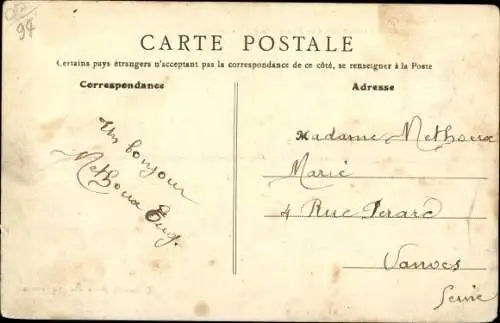 94
CARTE POSTALE
Certains pays étrangers n'acceptant pas la correspondance de ce côté, se renseigner à la Poste
Correspondance
Un bonjour
Methoux Eug.
Adresse
Madame Methoux
Marie
4 Rue Perard
Vanves
Seine